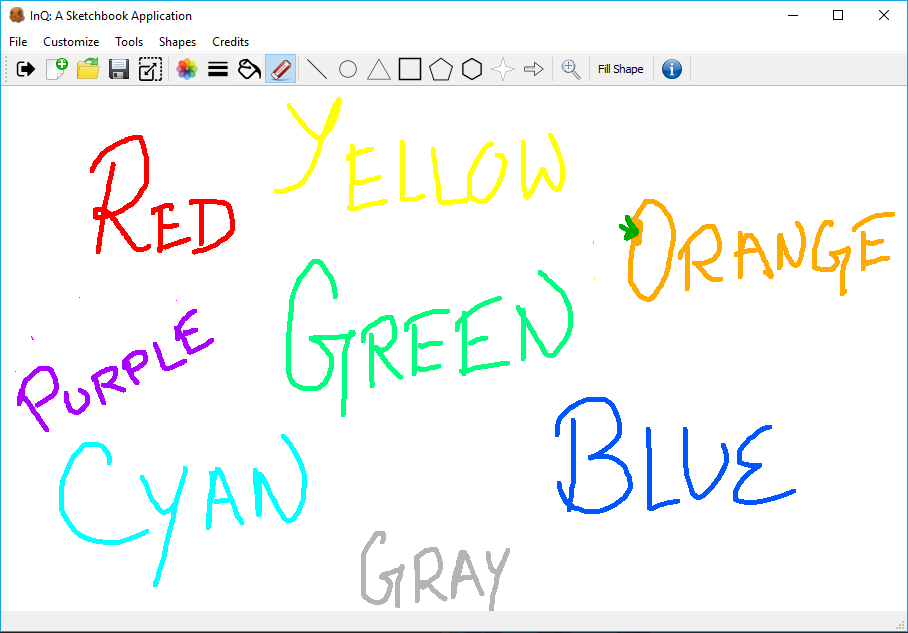 InQ: A Sketchbook Application
File Customize Tools Shapes Credits
Fill Shape
YELLOW
RED
ORANGE
GREEN
PURPLE
BLUE
CYAN
GRAY